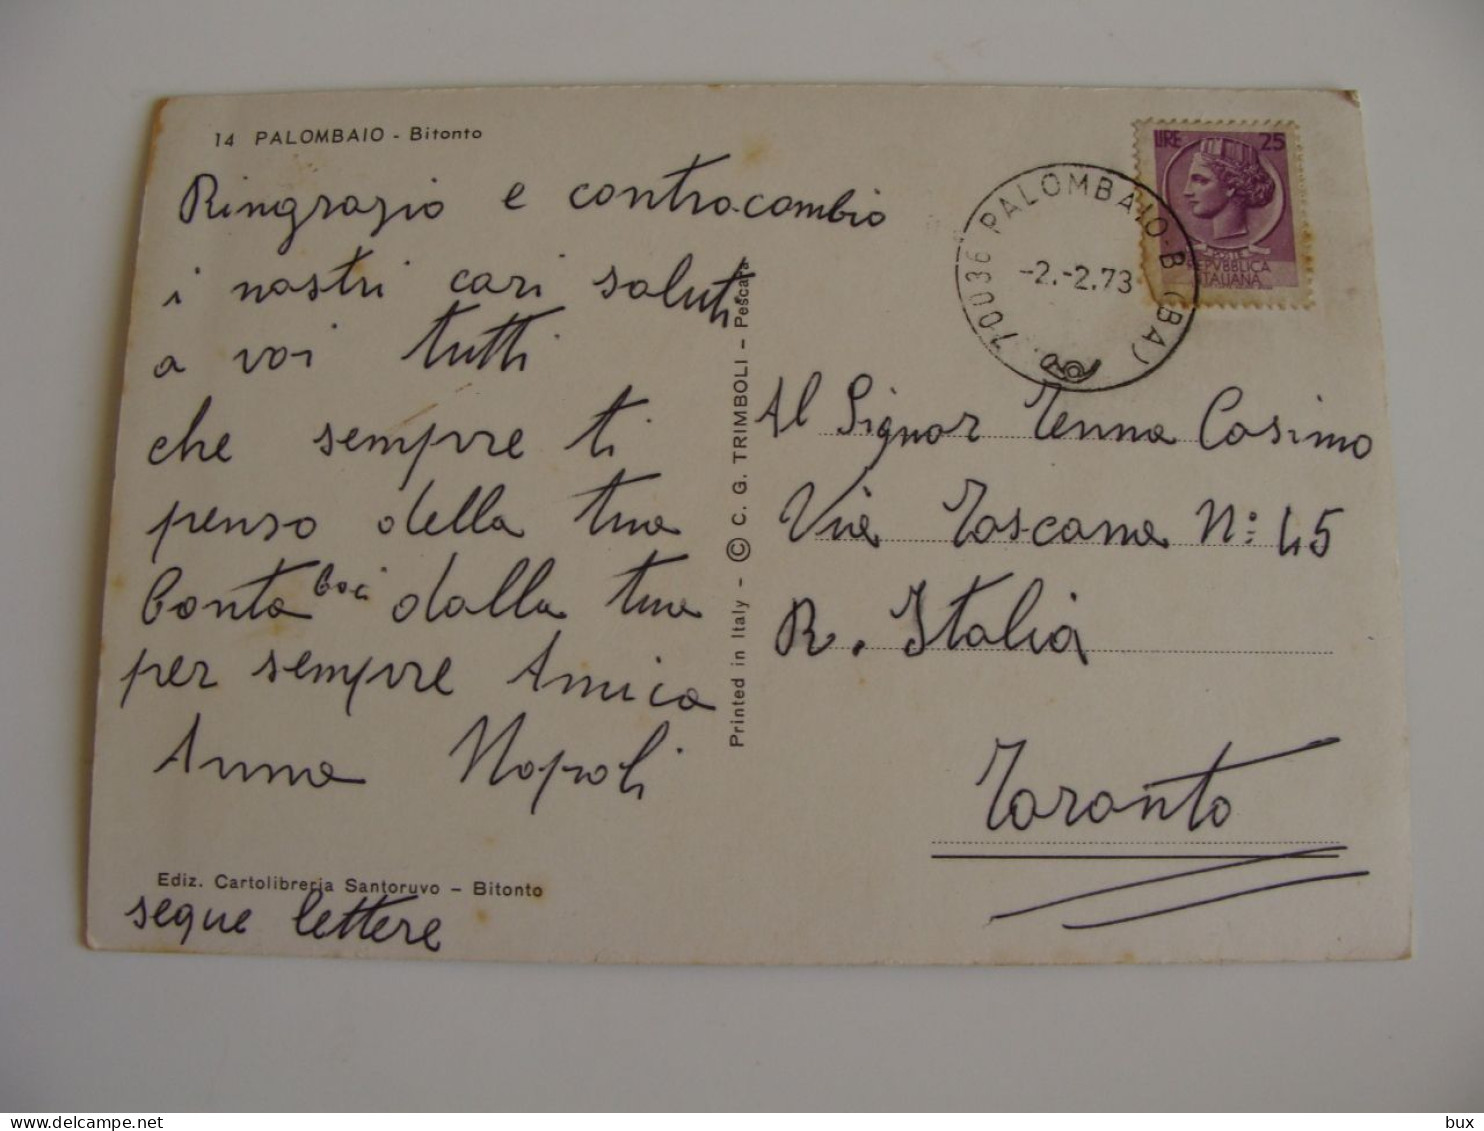 14 PALOMBAIO - Bitonto
Ringrazio e contracambio
i nostri cari saluti
a voi tutti
che sempre ti
penso della tua
Bonta baci dalla tua
per sempre Amica
Anna Napoli
Ediz. Cartolibreria Santoruvo - Bitonto
segue lettere
Printed in Italy - © C. G. TRIMBOLI - Pescara
LIRE 25
POSTE
REPVBBLICA
ITALIANA
70036 PALOMBAIO-B (BA)
-2.-2.73
Al Signor Tenna Cosimo
Via Toscana N: 45
R. Italia
Taranto
bux